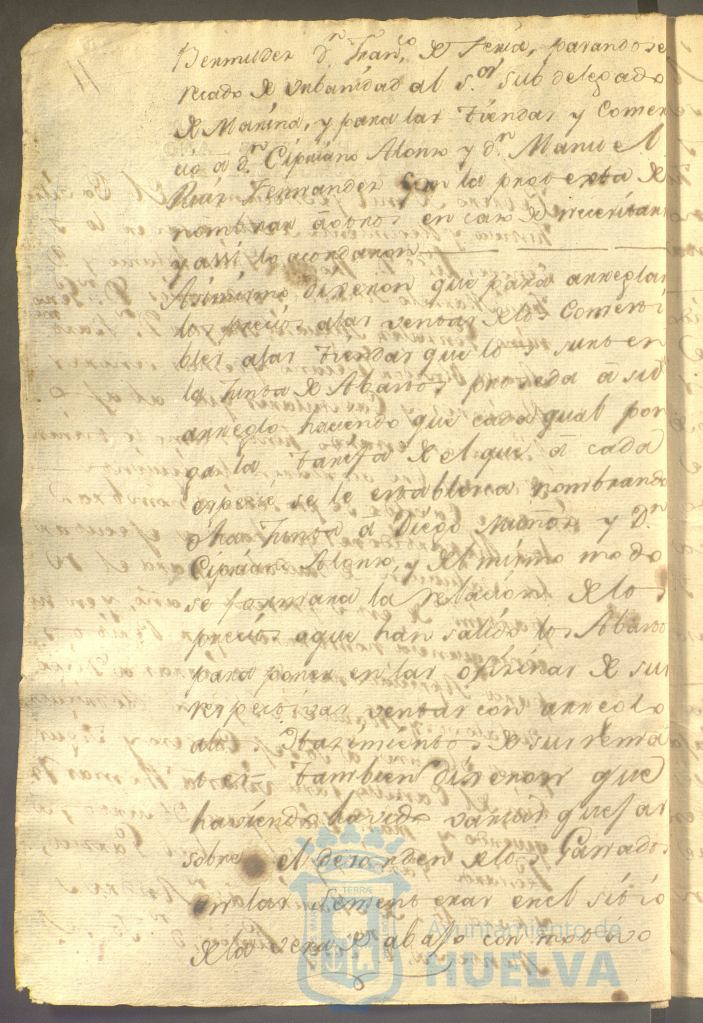 Bermudez D.n Fran.co de Feria, parandose
recado de urbanidad al S.or sub delegado
de Marina, y para las tiendas y Comer
cio a d.n Cipriano Alonso y d.n Manuel
Ruiz Fernandez con la protexta de
nombrar a otros en caso de necesitarse
y assi lo acordaron
Asimismo dixeron que para arreglar
los precios a las ventas de los Comesti
bles a las tiendas que los surten
la Junta de Abastos proseda a su
arreglo haciendo que cada qual pon
ga la tarifa de el que a cada
especie se le establesca nombrando
dha Junta a Diego Muñoz y D.n
Cipriano Alonso, y del mismo modo
se formara la relacion de los
precios a que han salido los Abastos
para poner en las oficinas de sus
respectivas ventas con arreglo
a los de sus rema
tes = tambien dixeron que
haviendo havido varias quejas
sobre el desorden de los Ganados
en las sementeras en el sitio
de la vega de abajo con motivo
11
Ayuntamiento de
HUELVA